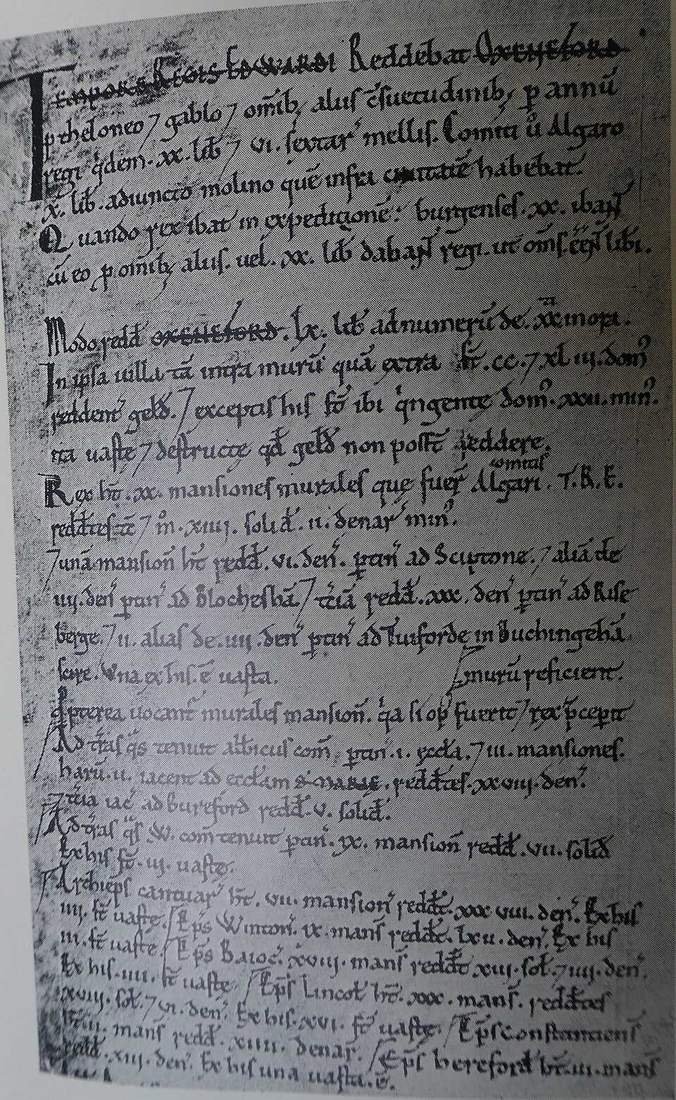 TEMPORE REGIS EDWARDI Reddebat OXENEFORD
p theloneo ⁊ gablo ⁊ om̄ib; aliis c̄suetudinib; p annū
regi q̇dem . xx . lib̄ ⁊ vi . sextar' mellis . Comiti ů Algaro
x . lib̄ . adiuncto molino quē infra ciuitatē habebat .
Quando rex ibat in expeditionē : burgenses . xx . iban̄t
cū eo p om̄ib; aliis . uel . xx . lib̄ daban̄t regi . ut om̄s ēēn̄t lib̄i .
Modo redd̄ OXENEFORD . lx . lib̄ ad numerū de . xx . in ora .
In ipsa uilla tā intra murū quā extra . st̄ . cc . ⁊ xl iii . dom'
reddent' geld̄ . ⁊ exceptis his st̄ ibi q̇ngente dom' . xxii . min'
ita uaste ⁊ destructe qd̄ geld̄ non poss̄t reddere .
Rex ht̄ . xx . mansiones murales que fuer̄ Algari comitis . T . R . E .
redd̄tes tc̄ ⁊ m̊ . xiiii . solid̄ . ii . denar' min' .
⁊ unā mansion̄ ht̄ redd̄ . vi . den' . ptin' ad Sciptone . ⁊ aliā de
iiii . den' ptin' ad Blocheshā . ⁊ tciā redd̄ . xxx . den' ptin' ad Rise
berge . ⁊ ii . alias de . iiii . den' ptin' ad Tuiforde in Buchingehā
scire . Una ex his . ē uasta .
murū reficient .
Ppterea uocant' murales mansion̄ . q̇a si op' fuerit ⁊ rex p̄cepit
Ad tras q̇s tenuit albicus com̄ , ptin' . i . ęccła . ⁊ iii . mansiones .
harū . ii . iacent ad ecclam S MARIE . redd̄tes . xxviii . den' .
⁊ tcia iac' ad Bureford redd̄ . v . solid̄ .
Ad tras q̇s W . com̄ tenuit ptin' . ix . mansion̄ redd̄ . vii . solid̄
Ex his st̄ . iii . uaste .
Archiep̄s cantuar' ht̄ . vii . mansion̄ redd̄t . xxx viii . den' . Ex his
iiii . st̄ uaste . Ep̄s Winton' . ix . mans̄ redd̄t . lxii . den' . Ex his
iii . st̄ uaste . Ep̄s Baioc' . xviii . mans̄ redd̄t xiii . sol̄ . ⁊ iiii . den' .
Ex his . iiii . st̄ uaste . Ep̄s Lincol̄ ht̄ . xxx . mans̄ . redd̄tes
xviii . sol̄ . ⁊ vi . den' . Ex his . xvi . st̄ uaste . Ep̄s constantiens̄
ht̄ . ii . mans̄ redd̄ . xiiii . denar' . Ep̄s hereford ht̄ . iii . mans̄
redd̄ . xiii . den' . Ex his una uasta . ē .